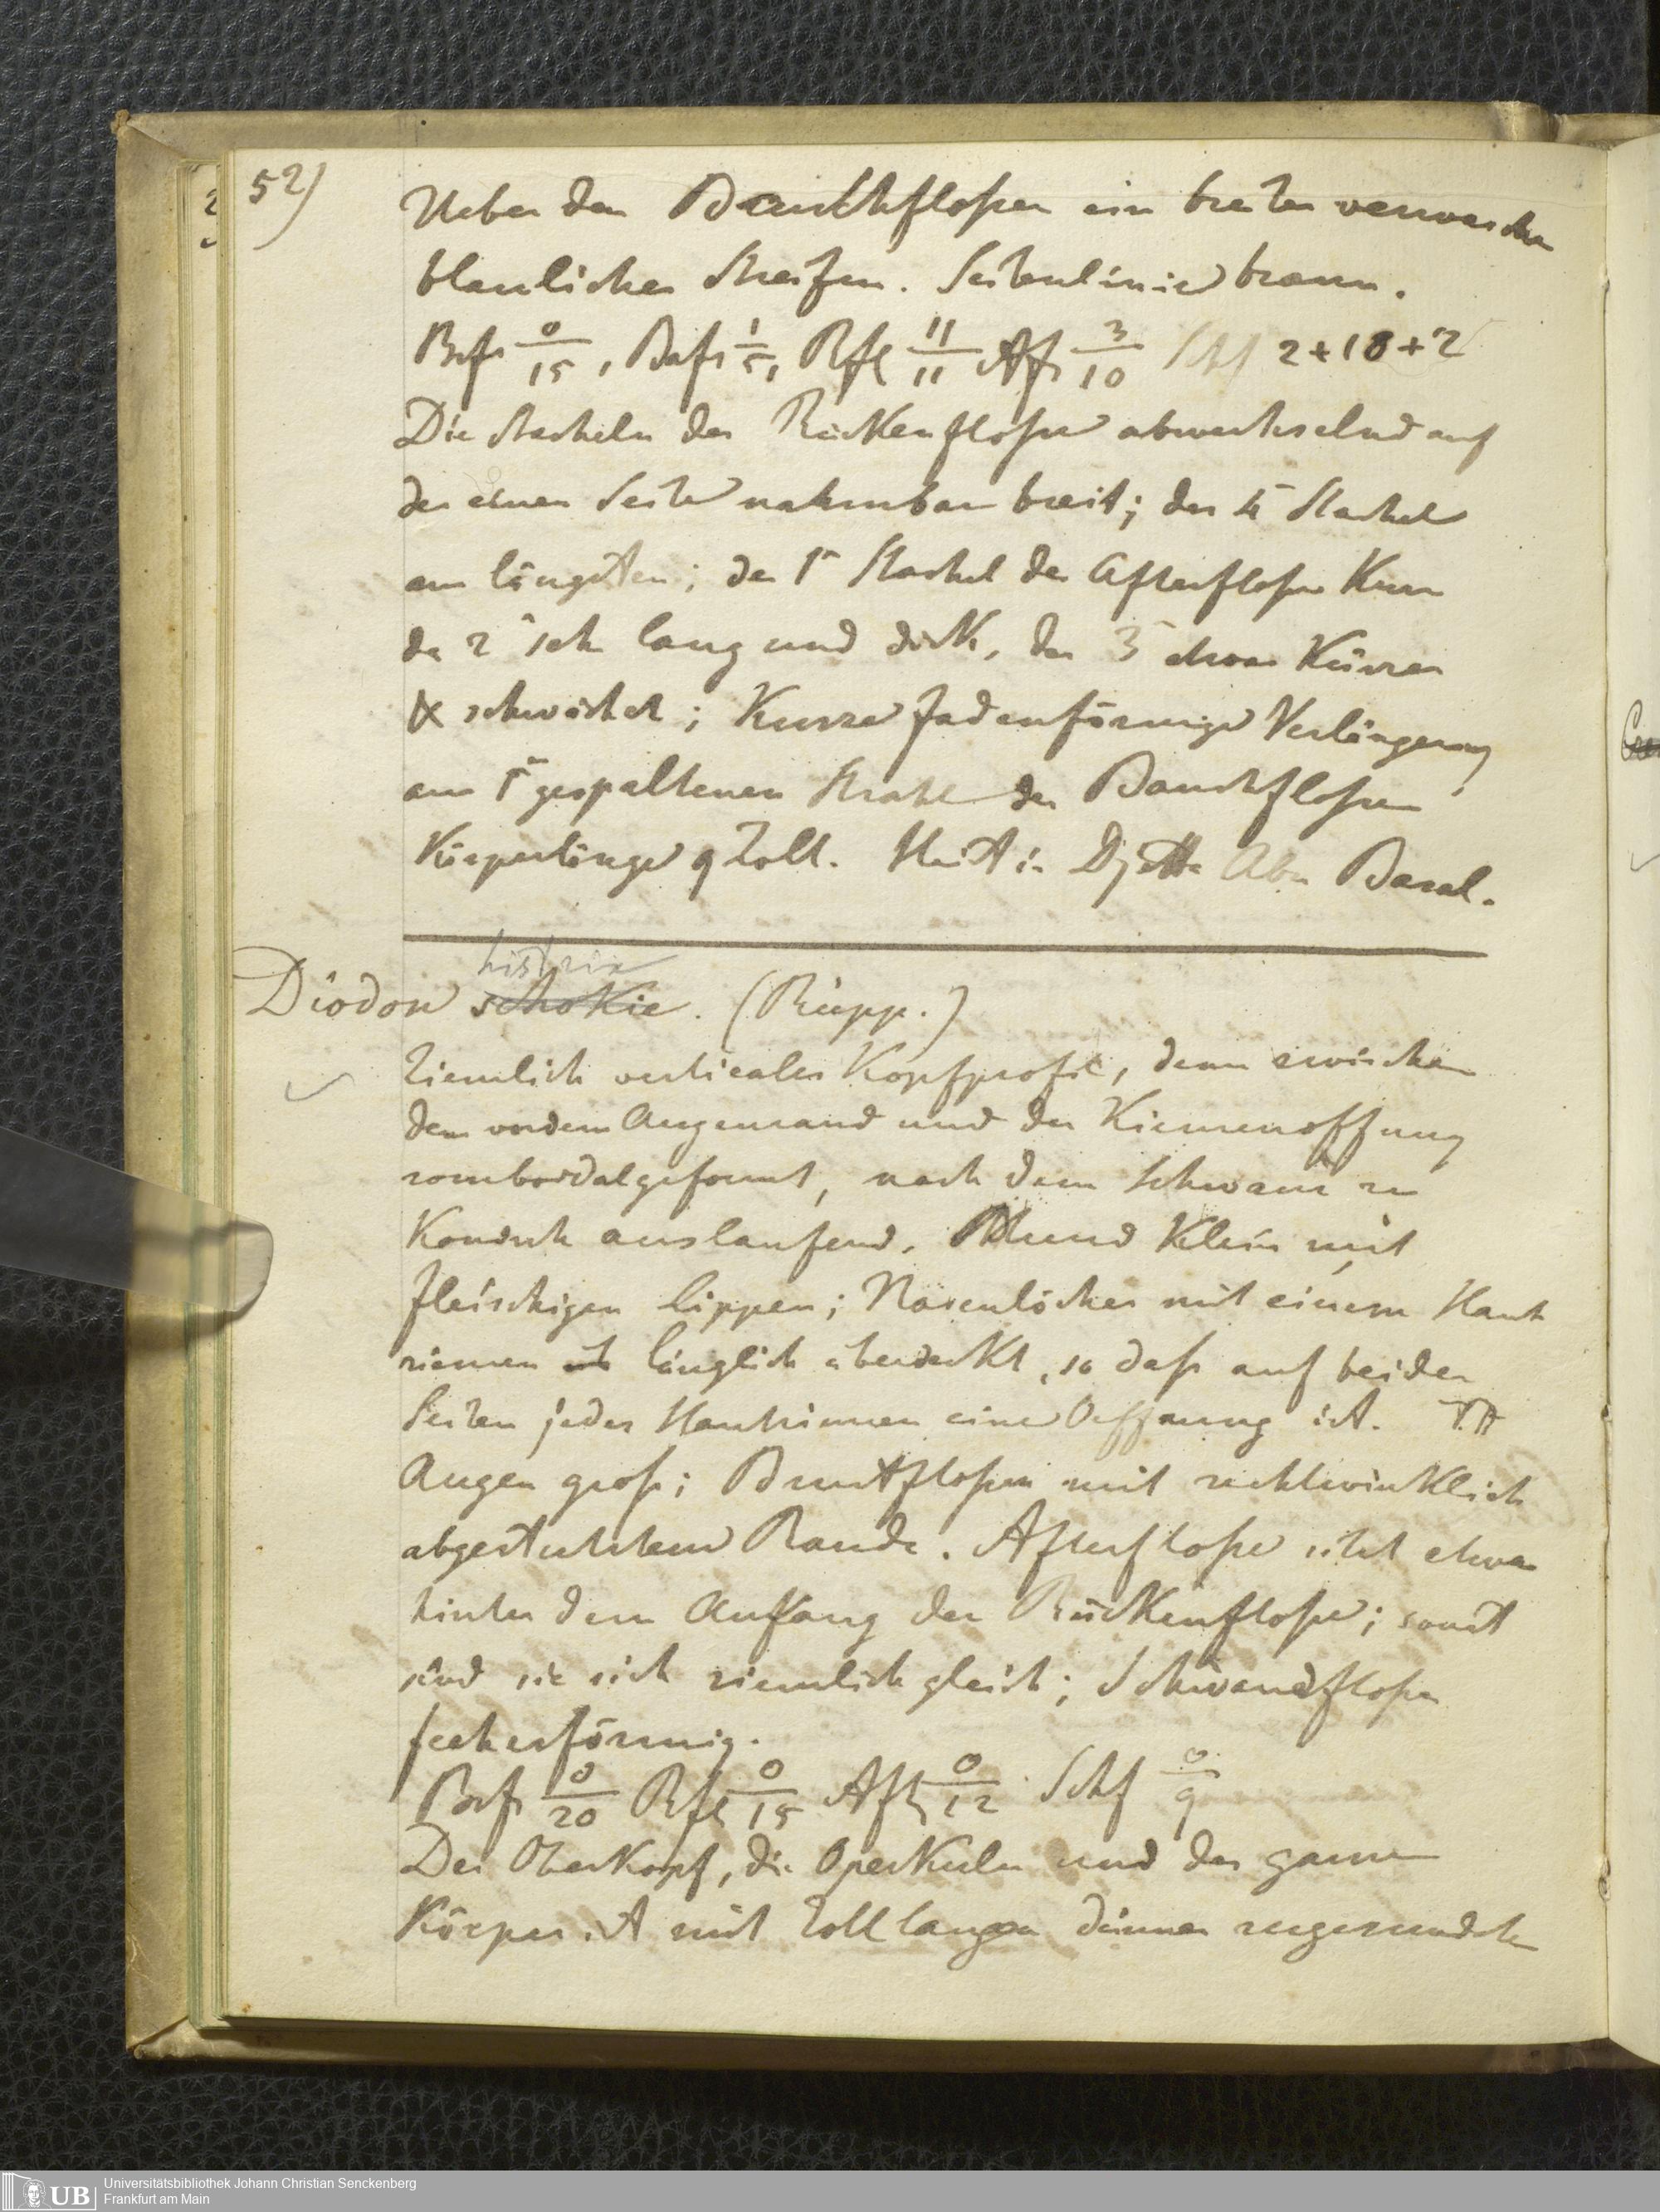 52)
Ueber den Bauchfloßen ein breiter verwaschen
blaulicher Streifen. Seitenlinie braun.
Brfs 0/15, Bafs 1/5, Rfl 11/11 Afs 3/10 Schf 2+18+2
Die Stacheln der Rückenfloße abwechselnd auf
der einen Seite nahmbar breit; der 4r Stachel
am längsten; der 1r Stachel der Afterfloße Kurz
der 2r sehr lang und dick, der 3r etwas Kürzer
& schwächer; Kurze fadenförmige Verlängerung
am 1r gespaltenen Strahl der Bauchfloßen
Körperlänge 9 Zoll. Heißt in Djetta Abu Basal.
histrix
Diodon schokie. (Rüpp.)
Ziemlich verticales Kopfprofil, dann zwischen
dem vordern Augenrand und der Kiemenoffung
romboidalgeformt, nach dem Schwanz zu
Konisch auslaufend. Mund Klein mit
fleischigen Lippen; Nasenlöcher mit einem Haut
riemen länglich überdeckt, so daß auf beiden
Seiten jedes Hautriemen eine Oeffnung ist.
Augen groß; Brustfloßen mit rechtwinklich
abgestutztem Rande. Afterfloße sitzt etwas
hinter dem Anfang der Rückenfloße; sonst
sind sie sich ziemlich gleich; Schwanzfloße
fecherförmig.
Brfs 0/20 Rfl 0/15 Aftf 0/12 Schf 0/9
Der Oberkopf, die Operkuln und der ganze
Körper ist mit Zoll langen dünnen zugerundeten
Universitätsbibliothek Johann Christian Senckenberg
Frankfurt am Main
UB